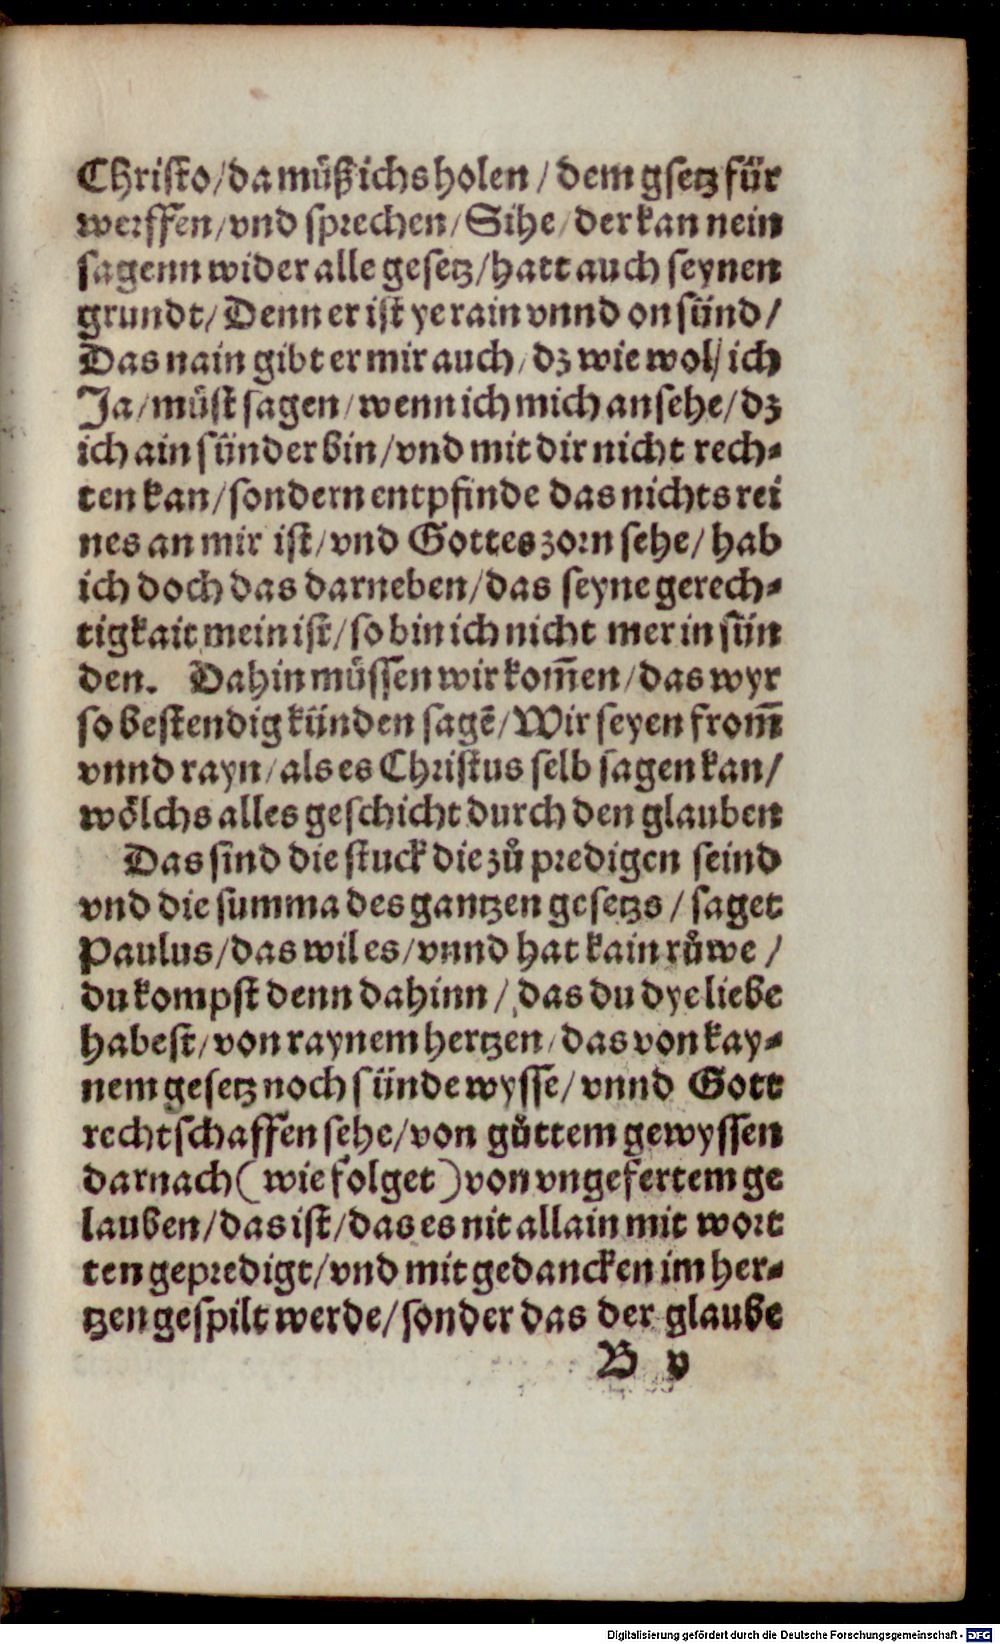 Christo/da müßichs holen/dem gsetz für
werffen/vnd sprechen/Sihe/der kan nein
sagenn wider alle gesetz/hatt auch seynen
grundt/Denn er ist ye rain vnnd on sünd/
Das nain gibt er mir auch/dz wie wol/ich
Ja/müst sagen/wenn ich mich ansehe/dz
ich ain sünder bin/vnd mit dir nicht rech⸗
ten kan/sondern entpfinde das nichts rei
nes an mir ist/vnd Gottes zorn sehe/hab
ich doch das darneben/das seyne gerech⸗
tigkait mein ist/so bin ich nicht mer in sün
den. Dahin müssen wir kom̃en/das wyr
so bestendig künden sagẽ/Wir seyen from̃
vnnd rayn/als es Christus selb sagen kan/
wölchs alles geschicht durch den glauben
Das sind die stuck die zů predigen seind
vnd die summa des gantzen gesetzs/saget
Paulus/das wil es/vnnd hat kain růwe/
du kompst denn dahinn/das du dye liebe
habest/von raynem hertzen/das von kay⸗
nem gesetz noch sünde wysse/vnnd Gott
rechtschaffen sehe/von gůttem gewyssen
darnach(wie folget)von vngefertem ge
lauben/das ist/das es nit allain mit wort
ten gepredigt/vnd mit gedancken im her⸗
tzen gespilt werde/sonder das der glaube
B v
Digitalisierung gefördert durch die Deutsche Forschungsgemeinschaft - DFG